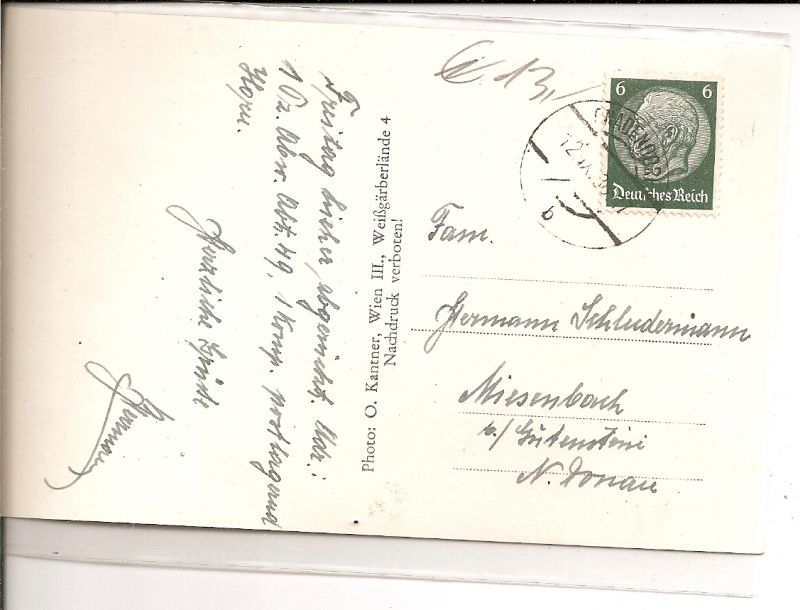 Freitag bisher abgerückt. Adr.:
1 Pz. Abw. Abt. 49, 1 Komp. postlagernd
Horn.
Herzliche Grüße
Hermann
Photo: O. Kantner, Wien III., Weißgärberlände 4
Nachdruck verboten!
6 6
Deutsches Reich
Fam.
Hermann Schludermann
Miesenbach
b/ Gutenstein
N. Donau